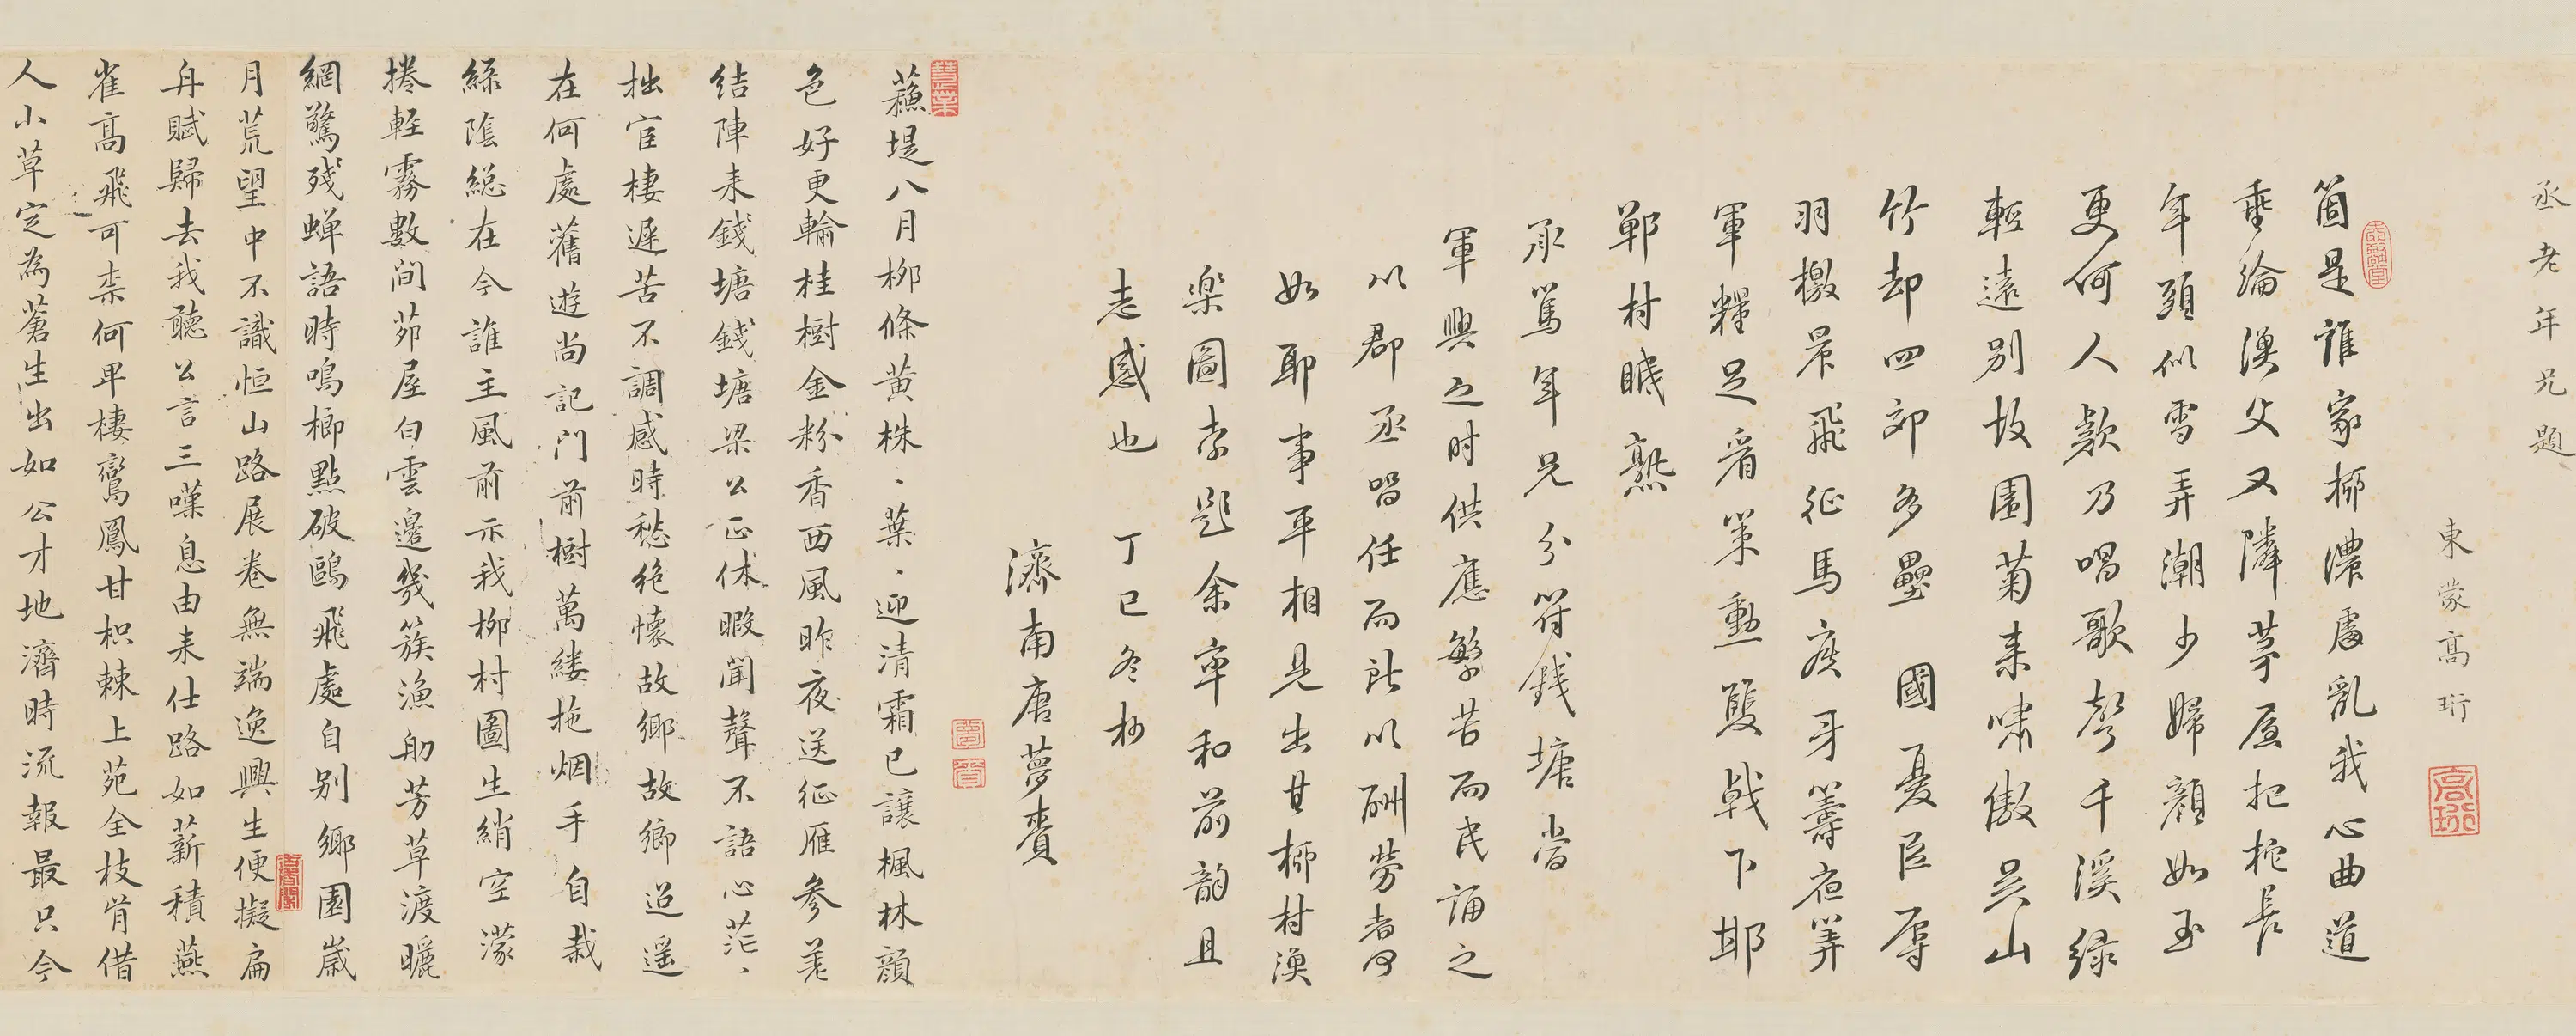 丞老年兄題
東蒙高珩
高珩
箇是誰家柳濃處亂我心曲道
垂綸漁父又隣茅屋把柁長
年頭似雪弄潮少婦顏如玉
更何人欸乃唱歌聲千溪綠
輕遠別故園菊来嘯傲吳山
竹却四郊多壘國憂臣辱
羽檄晨飛征馬疾牙籌夜算
軍糧足看策勳雙戟下邯
鄲村睡熟
承篤年兄分符錢塘當
軍興之時供應繁苦而民誦之
以郡丞召任而所以酬勞者何
如耶事平相見出其柳村漁
樂圖索題余率和前韵且
志感也 丁巳冬杪
濟南唐夢賚
蘓堤八月柳條黃株、葉、迎清霜已讓楓林顏
色好更輸桂樹金粉香西風昨夜送征雁參差
結陣来錢塘錢塘梁公正休暇聞聲不語心茫、
拙宦棲遲苦不調感時愁絶懷故鄉故鄉迢遥
在何處舊遊尚記門前樹萬縷拖烟手自栽
綠隂總在今誰主風前示我柳村圖生綃空濛
捲輕霧數間茆屋白雲邊幾簇漁舠芳草渡曬
網驚殘蟬語時鳴榔點破鷗飛處自别鄉園歲
月荒望中不識恒山路展卷無端逸興生便擬扁
舟賦歸去我聽公言三嘆息由来仕路如薪積燕
雀高飛可柰何卑棲鸞鳳甘枳棘上苑全枝肯借
人小草定為蒼生出如公才地濟時流報最只今